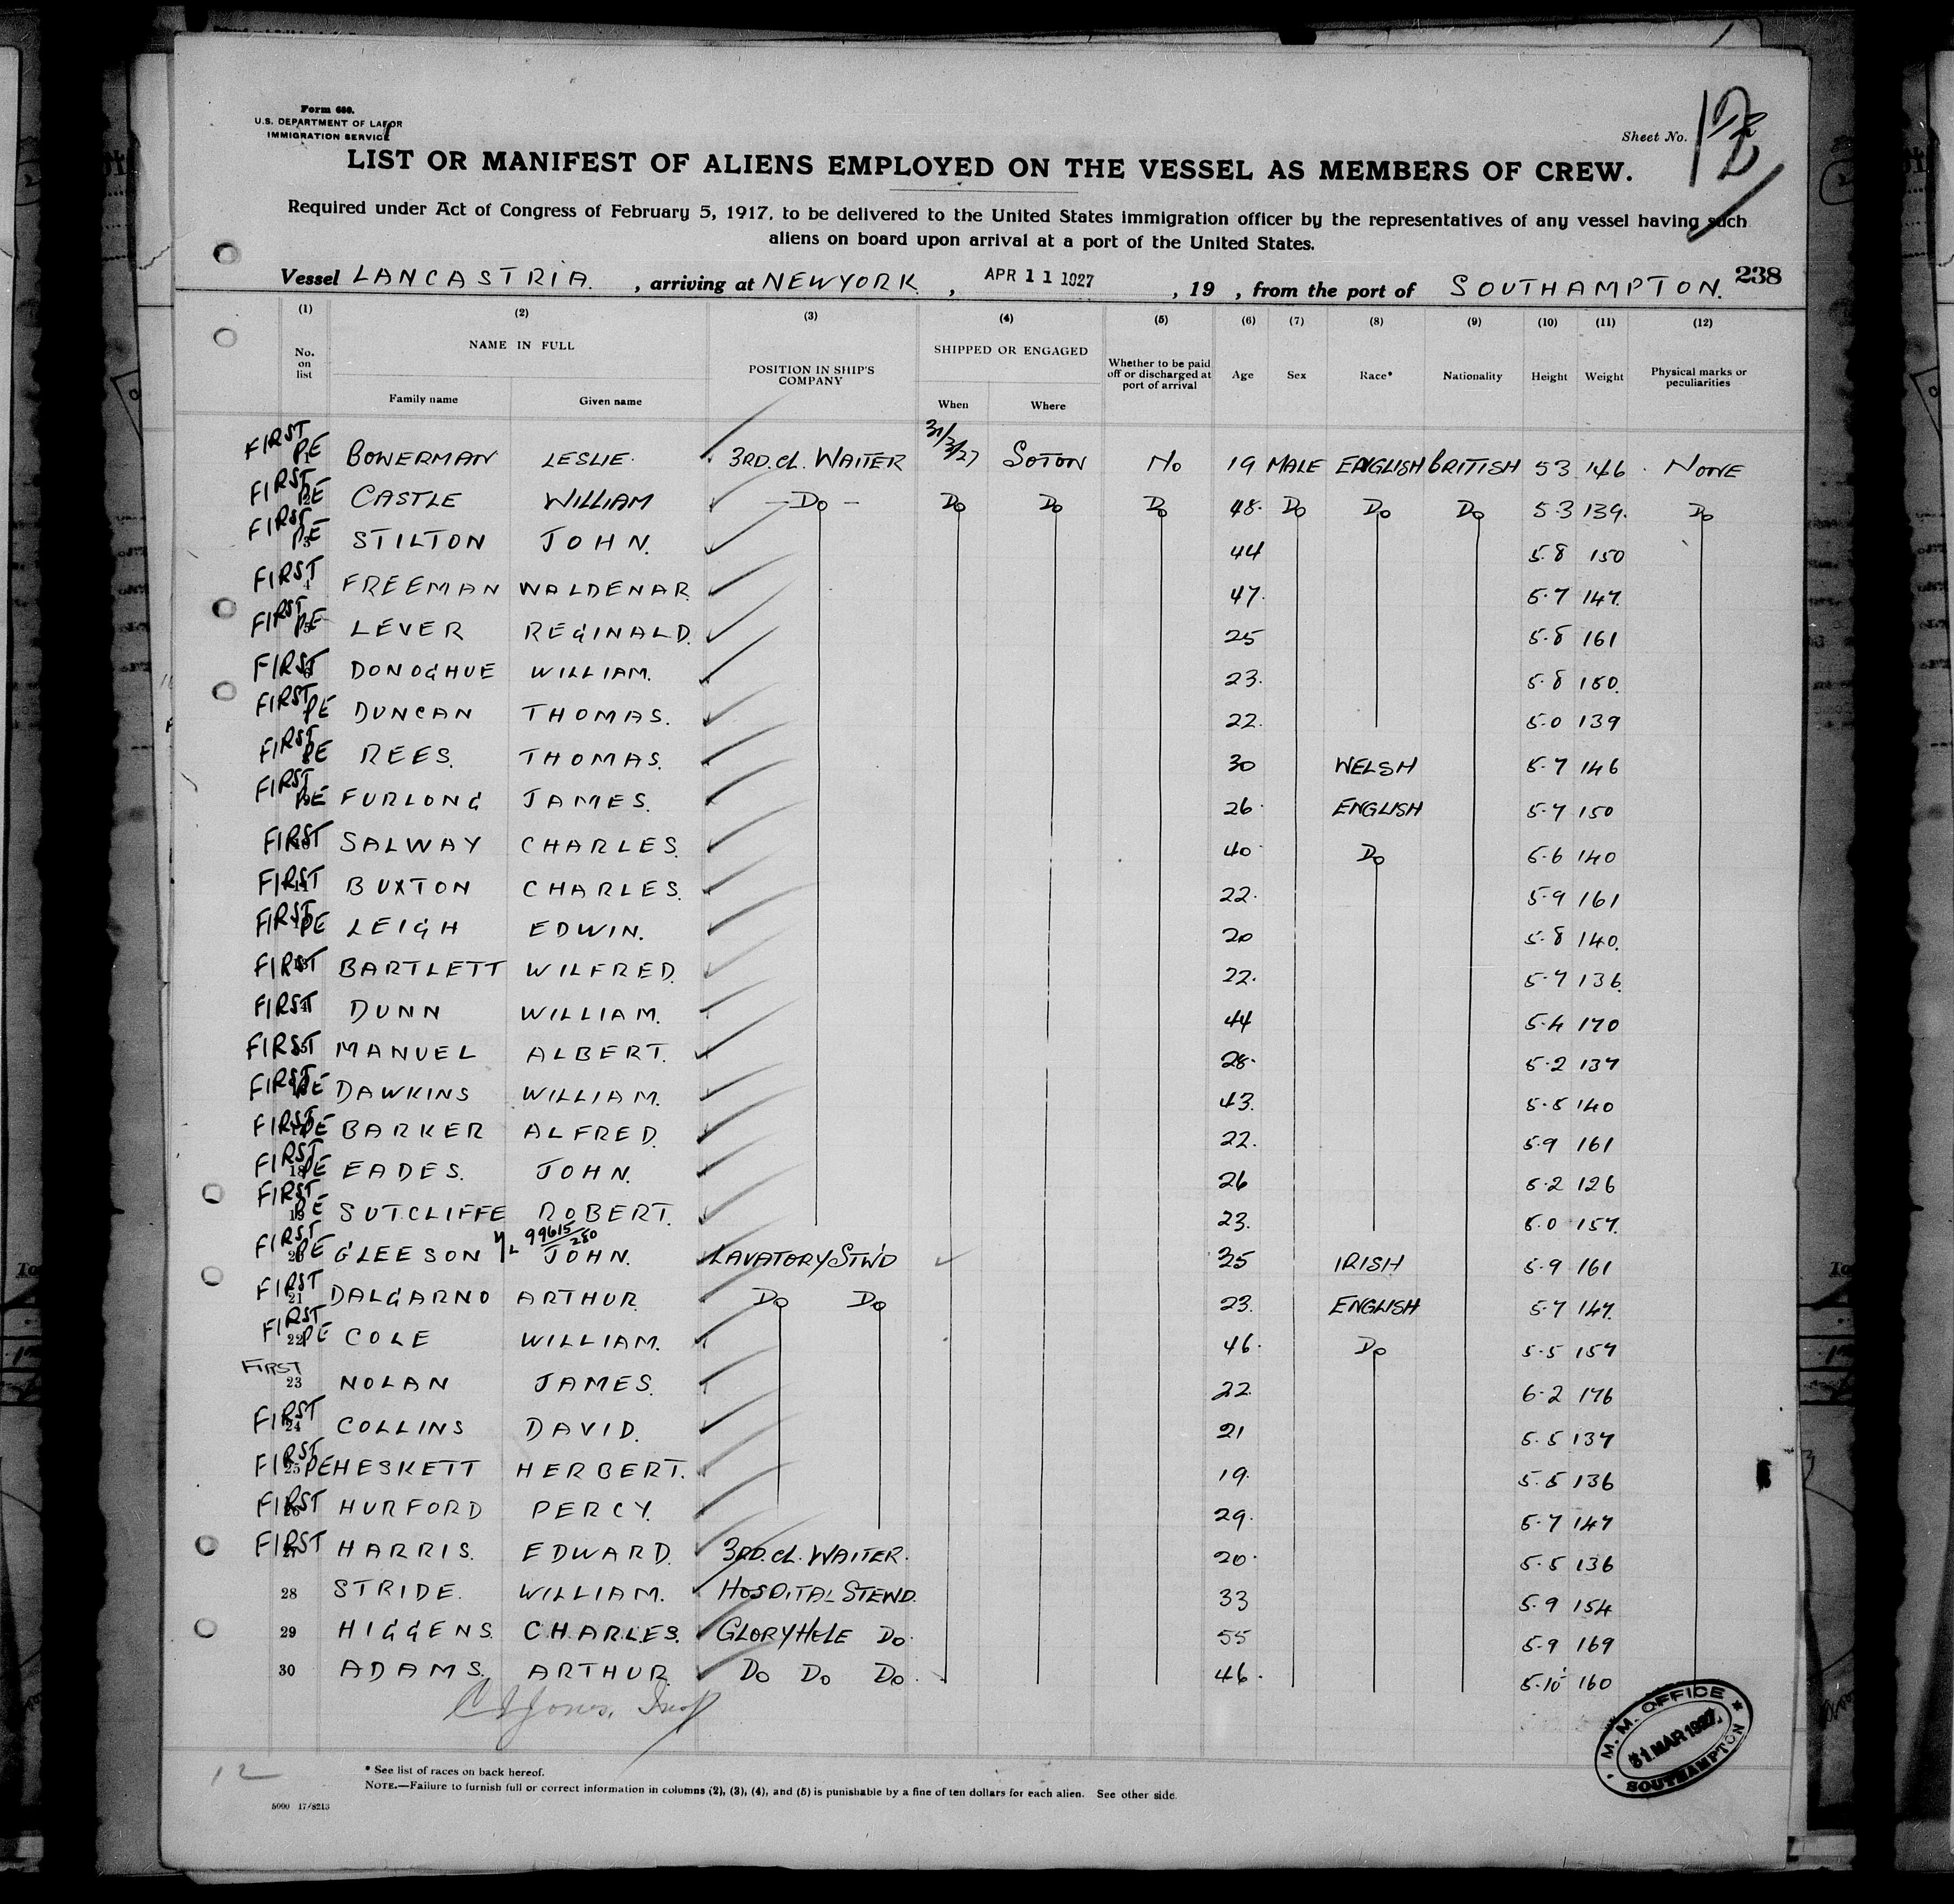 Form 680.
U.S. DEPARTMENT OF LABOR
IMMIGRATION SERVICE
Sheet No.
LIST OR MANIFEST OF ALIENS EMPLOYED ON THE VESSEL AS MEMBERS OF CREW.
Required under Act of Congress of February 5, 1917, to be delivered to the United States immigration officer by the representatives of any vessel having such
aliens on board upon arrival at a port of the United States.
Vessel LANCASTRIA. , arriving at NEWYORK , APR 11 1927 , 19 , from the port of SOUTHAMPTON. 238
(1) (2) (3) (4) (5) (6) (7) (8) (9) (10) (11) (12)
No. on list NAME IN FULL Family name Given name POSITION IN SHIP'S COMPANY SHIPPED OR ENGAGED When Where Whether to be paid off or discharged at port of arrival Age Sex Race* Nationality Height Weight Physical marks or peculiarities
FIRST PE 1 BOWERMAN LESLIE. 3RD.CL. WAITER 31/3/27 SOTON NO 19 MALE ENGLISH BRITISH 53 146 NONE
FIRST PE 2 CASTLE WILLIAM — Do — Do Do Do 48. Do Do Do 5.3 139. Do
FIRST PE 3 STILTON JOHN. 44 5.8 150
FIRST 4 FREEMAN WALDENAR. 47. 5.7 147.
FIRST PE 5 LEVER REGINALD. 25 5.8 161
FIRST 6 DONOGHUE WILLIAM. 23. 5.8 150.
FIRST PE DUNCAN THOMAS. 22. 5.0 139
FIRST PE 8 REES. THOMAS. 30 WELSH 5.7 146
FIRST PE FURLONG JAMES. 26. ENGLISH 5.7 150
FIRST 10 SALWAY CHARLES. 40 Do 5.6 140
FIRST 11 BUXTON CHARLES. 22. 5.9 161
FIRST PE LEIGH EDWIN. 20 5.8 140.
FIRST 13 BARTLETT WILFRED. 22. 5.7 136.
FIRST 14 DUNN WILLIAM. 44 5.4 170
FIRST 15 MANUEL ALBERT. 28. 5.2 137
FIRST PE DAWKINS WILLIAM. 43. 5.5 140
FIRST PE 17 BARKER ALFRED. 22. 5.9 161
FIRST PE 18 EADES. JOHN. 26 5.2 126
FIRST PE 19 SUTCLIFFE ROBERT. 23. 5.0 157.
FIRST PE 20 GLEESON 99615/280 JOHN. LAVATORY STWD 35 IRISH 5.9 161
FIRST 21 DALGARNO ARTHUR Do Do 23. ENGLISH 5.7 147.
FIRST PE 22 COLE WILLIAM. 46. Do 5.5 157
FIRST 23 NOLAN JAMES. 22. 6.2 176
FIRST 24 COLLINS DAVID. 21 5.5 137
FIRST PE 25 HESKETT HERBERT. 19. 5.5 136
FIRST 26 HURFORD PERCY. 29. 5.7 147
FIRST 27 HARRIS. EDWARD. 3RD.CL. WAITER. 20. 5.5 136
28 STRIDE. WILLIAM. HOSPITAL STEWD. 33 5.9 154
29 HIGGENS. CHARLES. GLORYHOLE Do. 55 5.9 169
30 ADAMS. ARTHUR Do Do Do. 46. 5.10 160
Jones, Insp
M. M. OFFICE
31 MAR 1927
SOUTHAMPTON
12
* See list of races on back hereof.
NOTE.—Failure to furnish full or correct information in columns (2), (3), (4), and (5) is punishable by a fine of ten dollars for each alien. See other side.
5000 17/8213